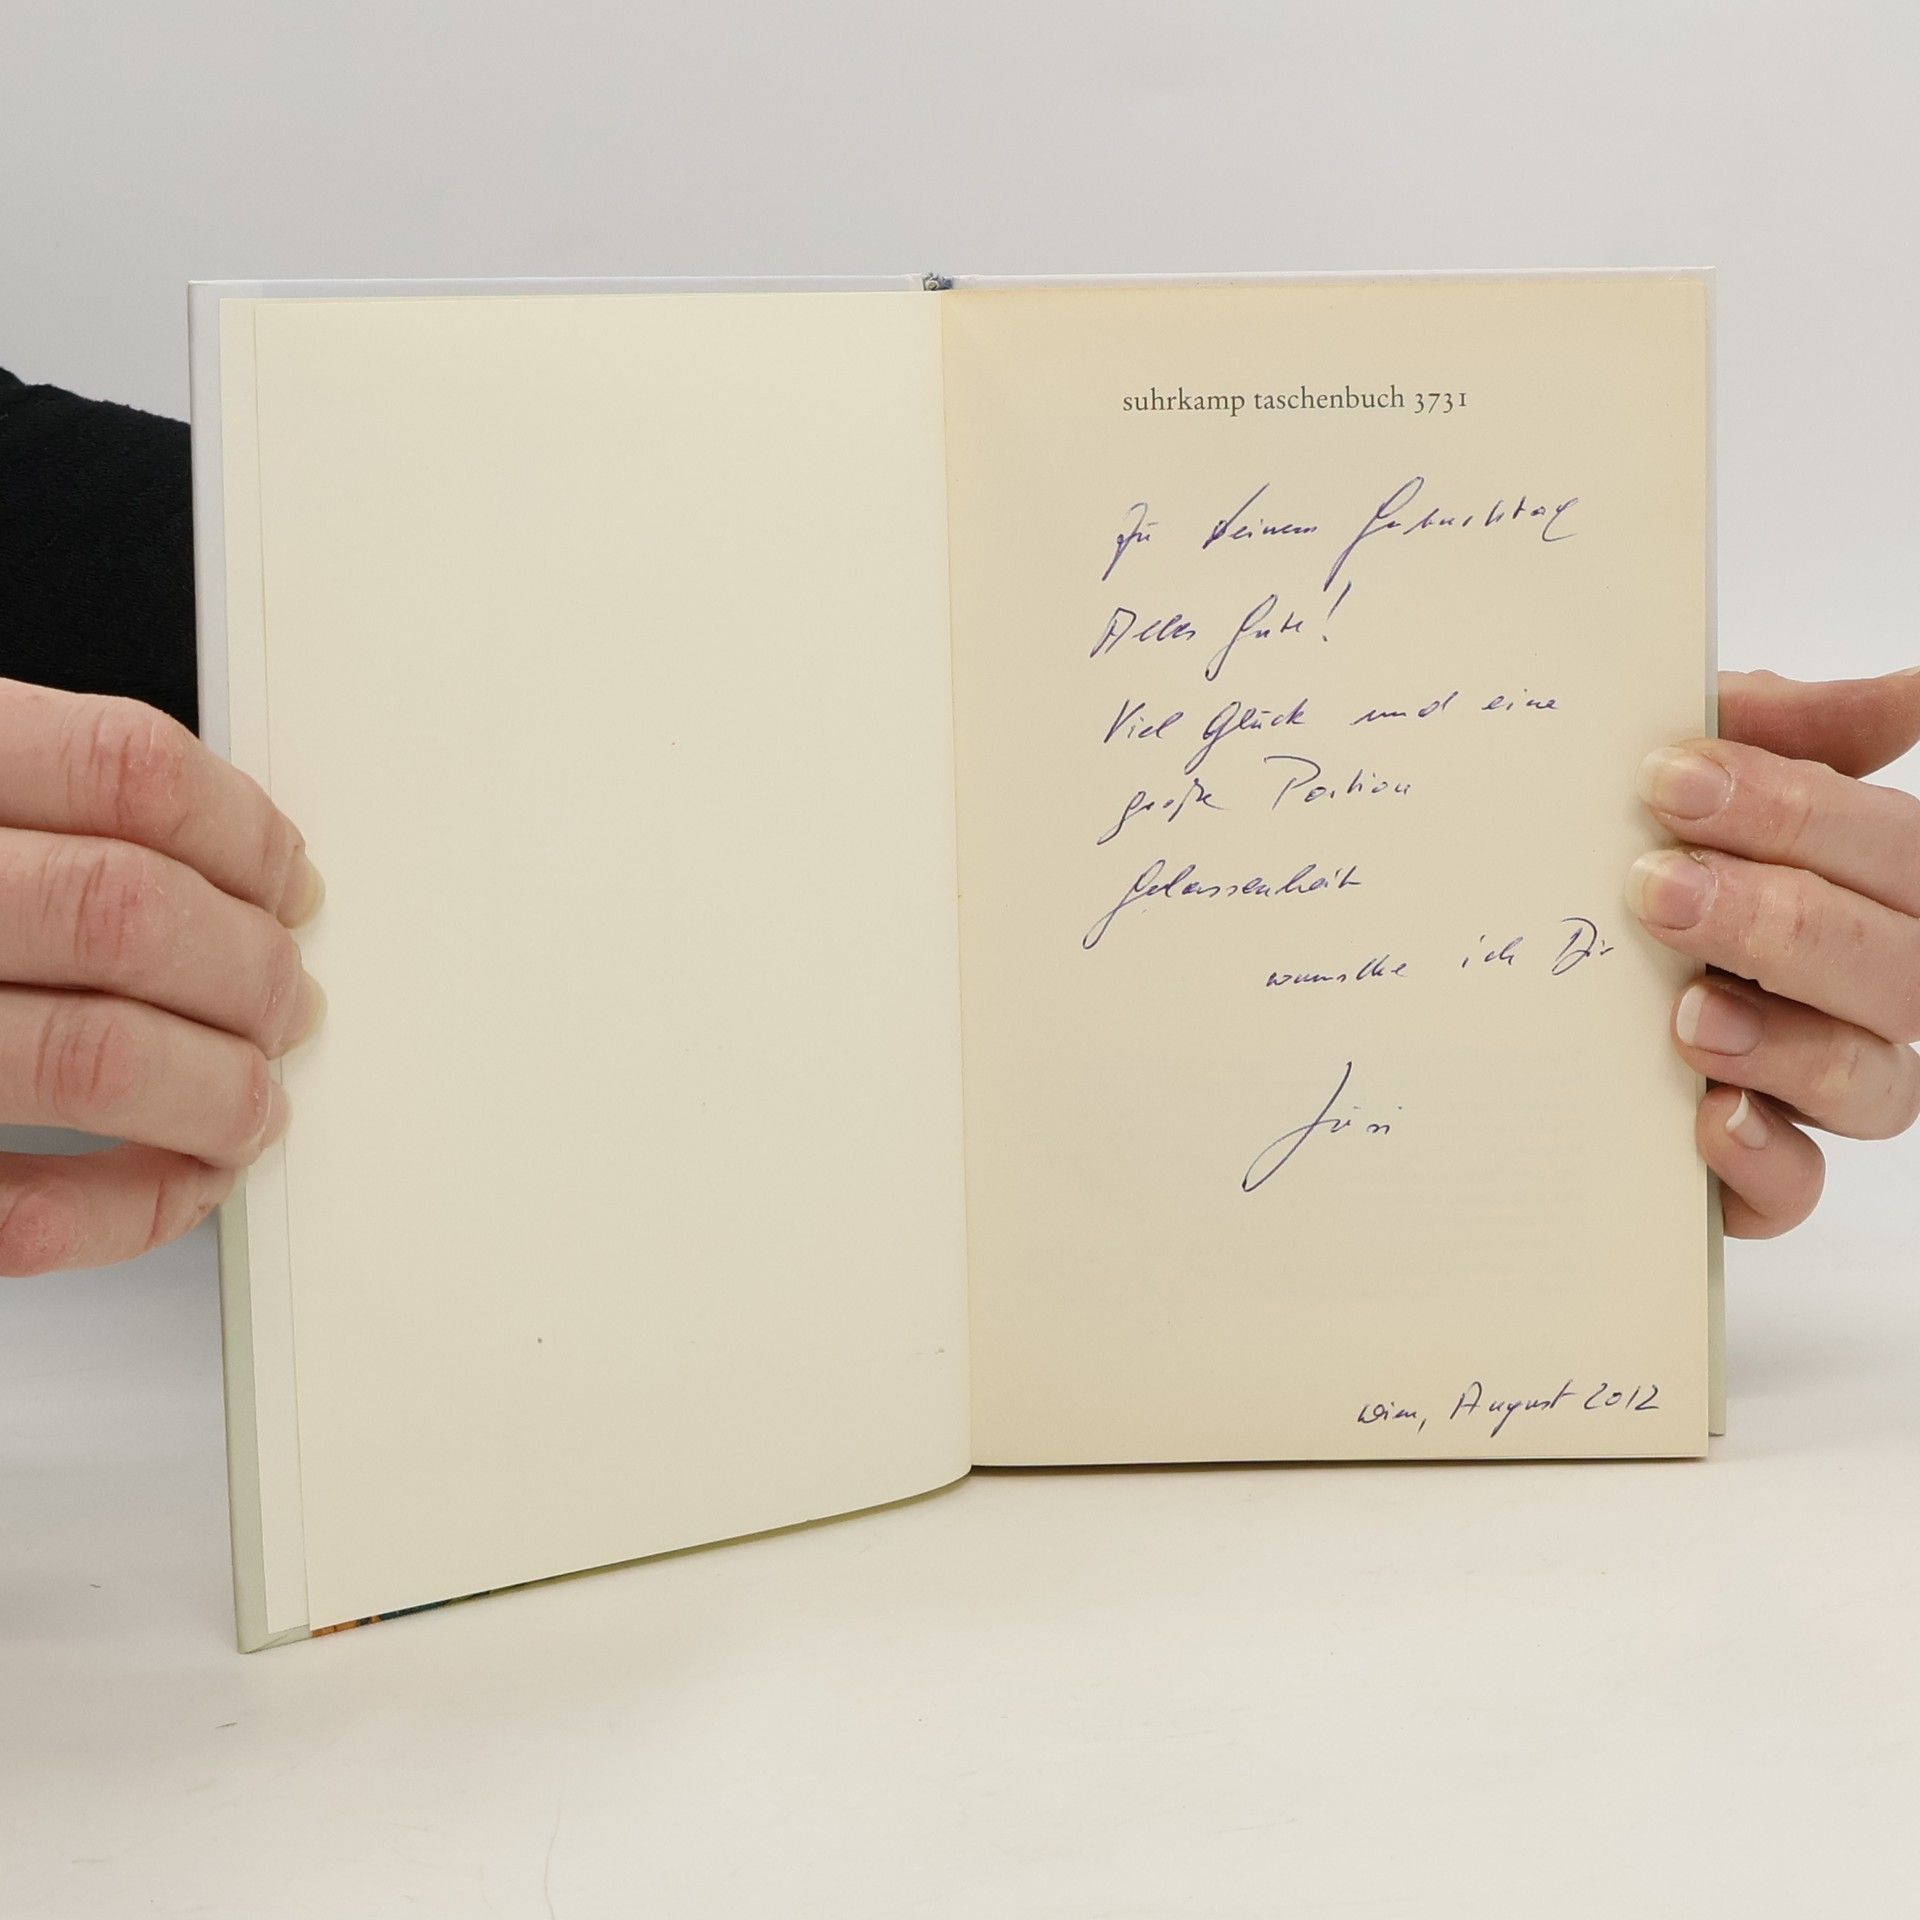 suhrkamp taschenbuch 3731
Zu Deinem Geburtstag
Alles Gute!
Viel Glück und eine
große Portion
Gelassenheit
wünsche ich Dir
Wien, August 2012